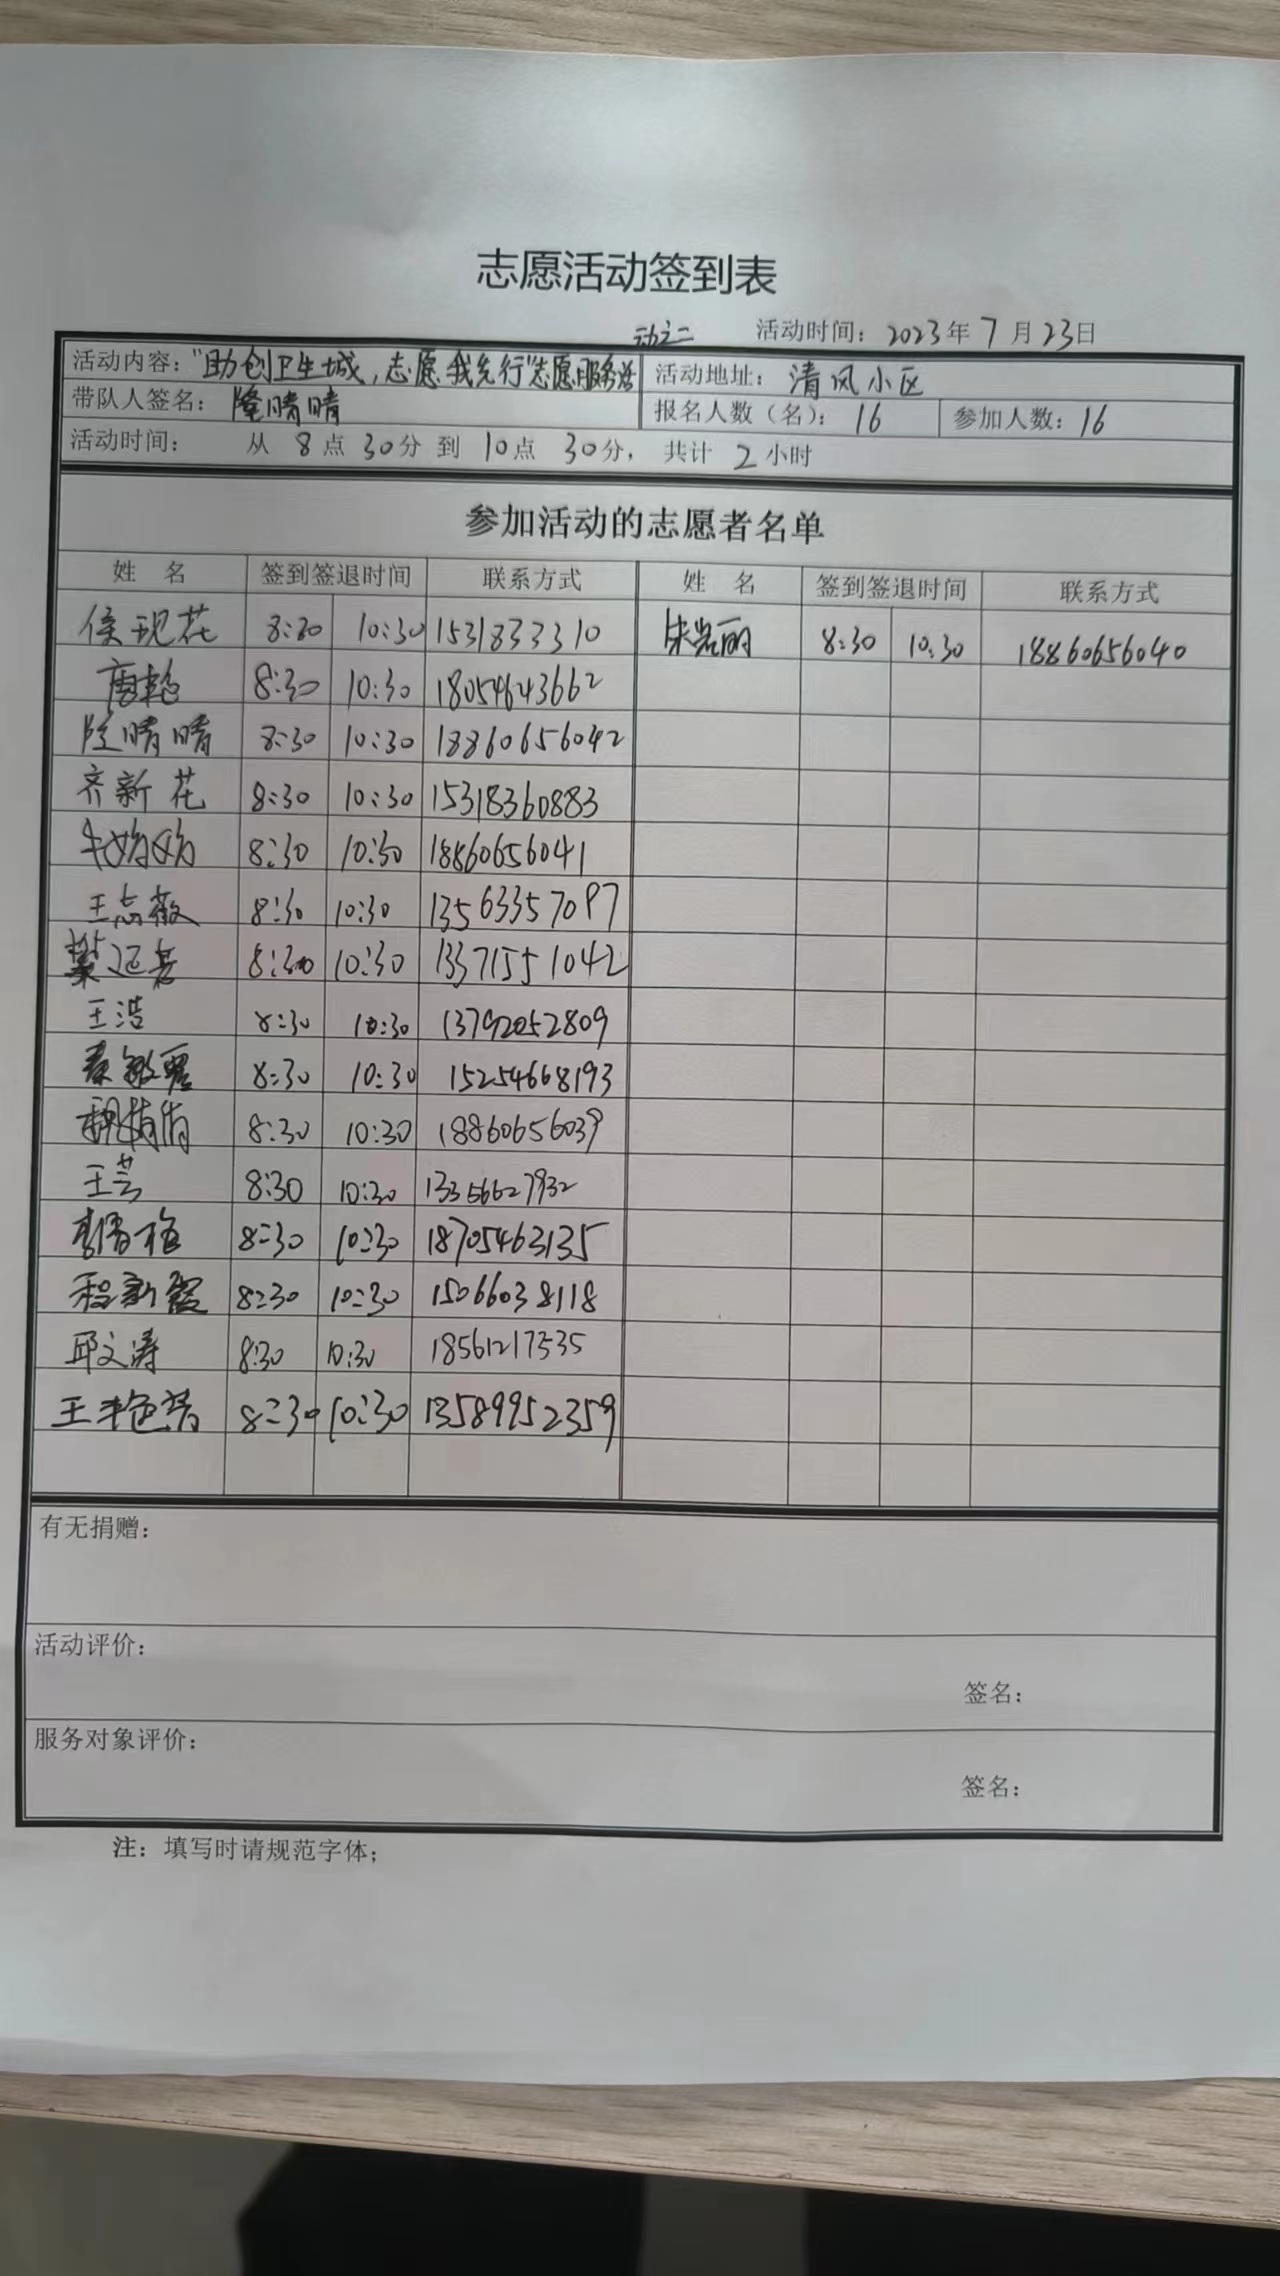 志愿活动签到表
活动时间：2023年7月23日
活动内容："助创卫生城，志愿我先行"志愿服务活动之二
活动地址：清风小区
带队人签名：隆晴晴
报名人数（名）：16 参加人数：16
活动时间： 从 8 点 30分 到 10点 30分， 共计 2 小时
参加活动的志愿者名单
姓 名 签到签退时间 联系方式 姓 名 签到签退时间 联系方式
侯现花 8:30 10:30 1531833310 朱光丽 8:30 10:30 18860656040
8:30 10:30 18054643662
隆晴晴 8:30 10:30 18860656042
齐新花 8:30 10:30 15318360883
8:30 10:30 18860656041
王志薇 8:30 10:30 13563357097
8:30 10:30 13371551042
王浩 8:30 10:30 13792052809
秦敏 8:30 10:30 15254668193
魏倩倩 8:30 10:30 18860656039
王芸 8:30 10:30 13356627932
8:30 10:30 18705463135
程新霞 8:30 10:30 15066038118
邱文涛 8:30 10:30 18561217535
王 8:30 10:30 13589952359
有无捐赠：
活动评价：
签名：
服务对象评价：
签名：
注：填写时请规范字体；